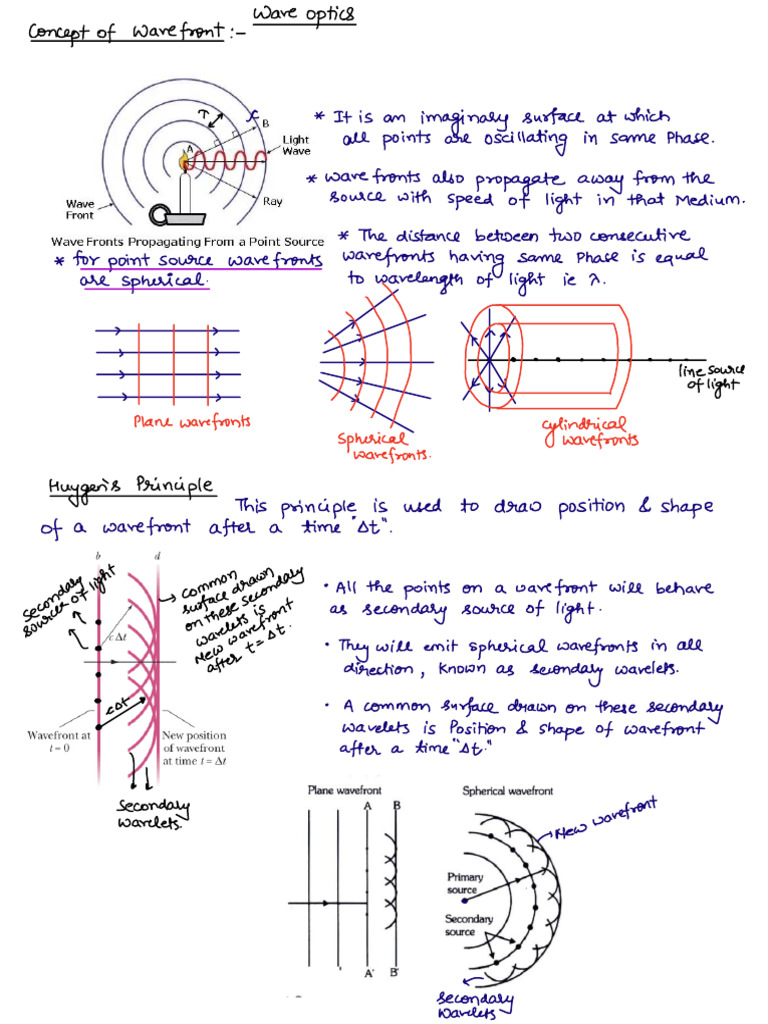 Wave optics
Concept of Wavefront:-
A
T
λ
B
Light
Wave
Ray
Wave
Front
Wave Fronts Propagating From a Point Source
* for point source wavefronts
are spherical.
* It is an imaginary surface at which
all points are oscillating in same Phase.
* wavefronts also propagate away from the
source with speed of light in that Medium.
* The distance between two consecutive
wavefronts having same Phase is equal
to wavelength of light ie λ.
Plane wavefronts
Spherical
wavefronts.
line source
of light
cylindrical
wavefronts
Huygen's Principle
This principle is used to draw position & shape
of a wavefront after a time "Δt".
b
d
Secondary
source of light
common
surface drawn
on these secondary
wavelets is
New wavefront
after t = Δt.
cΔt
cΔt
Wavefront at
t = 0
New position
of wavefront
at time t = Δt
Secondary
wavelets.
· All the points on a wavefront will behave
as secondary source of light.
· They will emit spherical wavefronts in all
direction, known as secondary wavelets.
· A common surface drawn on these secondary
wavelets is Position & shape of wavefront
after a time "Δt."
Plane wavefront
A
B
A'
B'
Spherical wavefront
New wavefront
Primary
source
Secondary
source
secondary
wavelets